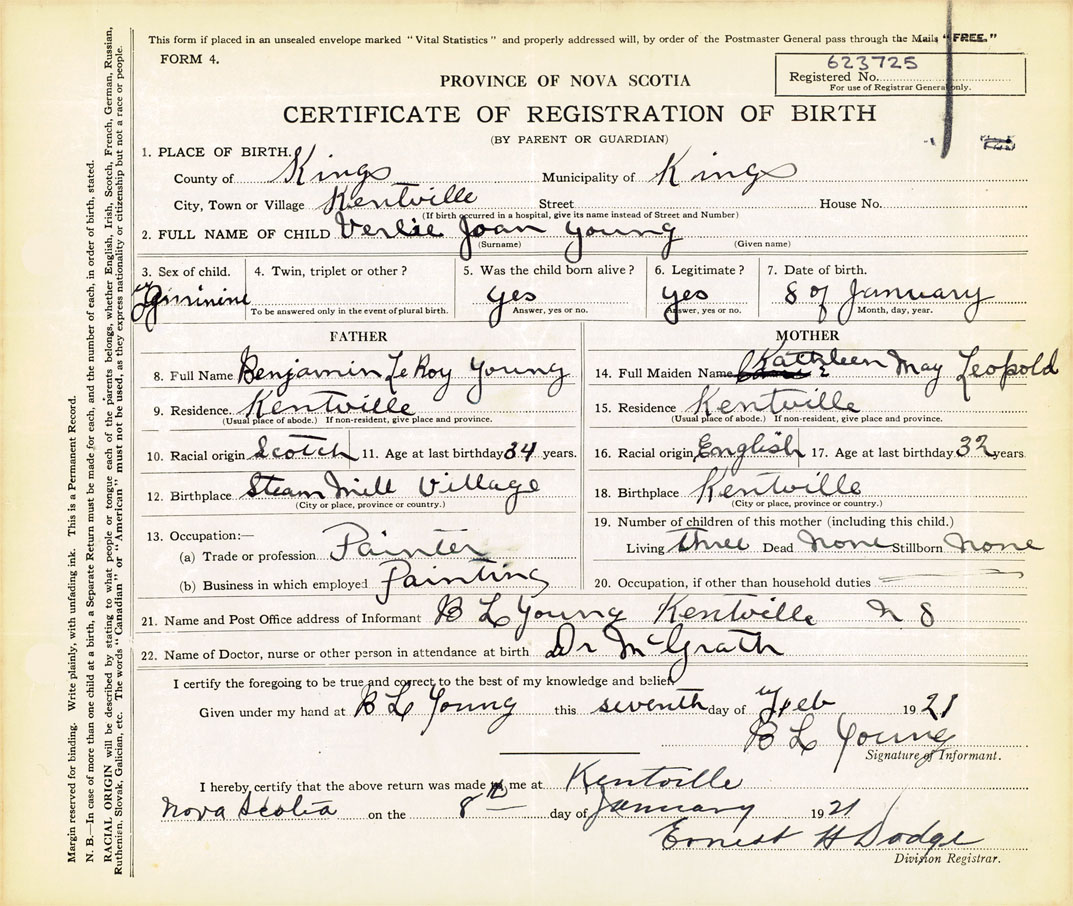 This form if placed in an unsealed envelope marked "Vital Statistics" and properly addressed will, by order of the Postmaster General pass through the Mails "FREE."
FORM 4.
623725
Registered No.
For use of Registrar General only.
PROVINCE OF NOVA SCOTIA
CERTIFICATE OF REGISTRATION OF BIRTH
(BY PARENT OR GUARDIAN)
1. PLACE OF BIRTH.
County of Kings Municipality of Kings
City, Town or Village Kentville Street House No.
(If birth occurred in a hospital, give its name instead of Street and Number)
2. FULL NAME OF CHILD Verlie Joan Young
(Surname) (Given name)
3. Sex of child. 4. Twin, triplet or other? 5. Was the child born alive? 6. Legitimate? 7. Date of birth.
Feminine yes yes 8 of January
To be answered only in the event of plural birth. Answer, yes or no. Answer, yes or no. Month, day, year.
FATHER MOTHER
8. Full Name Benjamin LeRoy Young 14. Full Maiden Name Kathleen May Leopold
9. Residence. Kentville 15. Residence Kentville
(Usual place of abode.) If non-resident, give place and province. (Usual place of abode.) If non-resident, give place and province.
10. Racial origin Scotch 11. Age at last birthday 34 years. 16. Racial origin English 17. Age at last birthday 32 years.
12. Birthplace Steam Mill Village 18. Birthplace Kentville
(City or place, province or country.) (City or place, province or country.)
13. Occupation:— 19. Number of children of this mother (including this child.)
(a) Trade or profession Painter Living three Dead None Stillborn None
(b) Business in which employed Painting 20. Occupation, if other than household duties
21. Name and Post Office address of Informant B L Young Kentville N S
22. Name of Doctor, nurse or other person in attendance at birth Dr McGrath
I certify the foregoing to be true and correct to the best of my knowledge and belief.
Given under my hand at B L Young this seventh day of Feb 1921
B L Young
Signature of Informant.
I hereby certify that the above return was made to me at Kentville
Nova Scotia on the 8th day of January 1921
Ernest H Dodge
Division Registrar.
Margin reserved for binding. Write plainly, with unfading ink. This is a Permanent Record.
N. B.—In case of more than one child at a birth, a Separate Return must be made for each, and the number of each, in order of birth, stated.
RACIAL ORIGIN will be described by stating to what people or tongue each of the parents belongs, whether English, Irish, Scotch, French, German, Russian,
Ruthenien, Slovak, Galician, etc. The words "Canadian" or "American" must not be used, as they express nationality or citizenship but not a race or people.